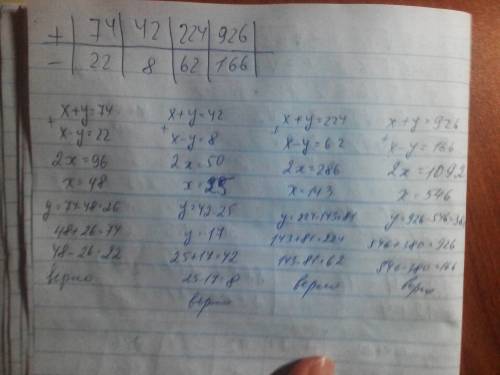 + | 74 | 42 | 224 | 926 |
- | 22 | 8 | 62 | 166 |
+ x+y=74
x-y=22
2x=96
x=48
y=74-48=26
48+26=74
48-26=22
верно
+ x+y=42
x-y=8
2x=50
x=25
y=42-25
y=17
25+17=42
25-17=8
верно
+ x+y=224
x-y=62
2x=286
x=143
y=224-143=81
143+81=224
143-81=62
верно
+ x+y=926
x-y=166
2x=1092
x=546
y=926-546=380
546+380=926
546-380=166
верно